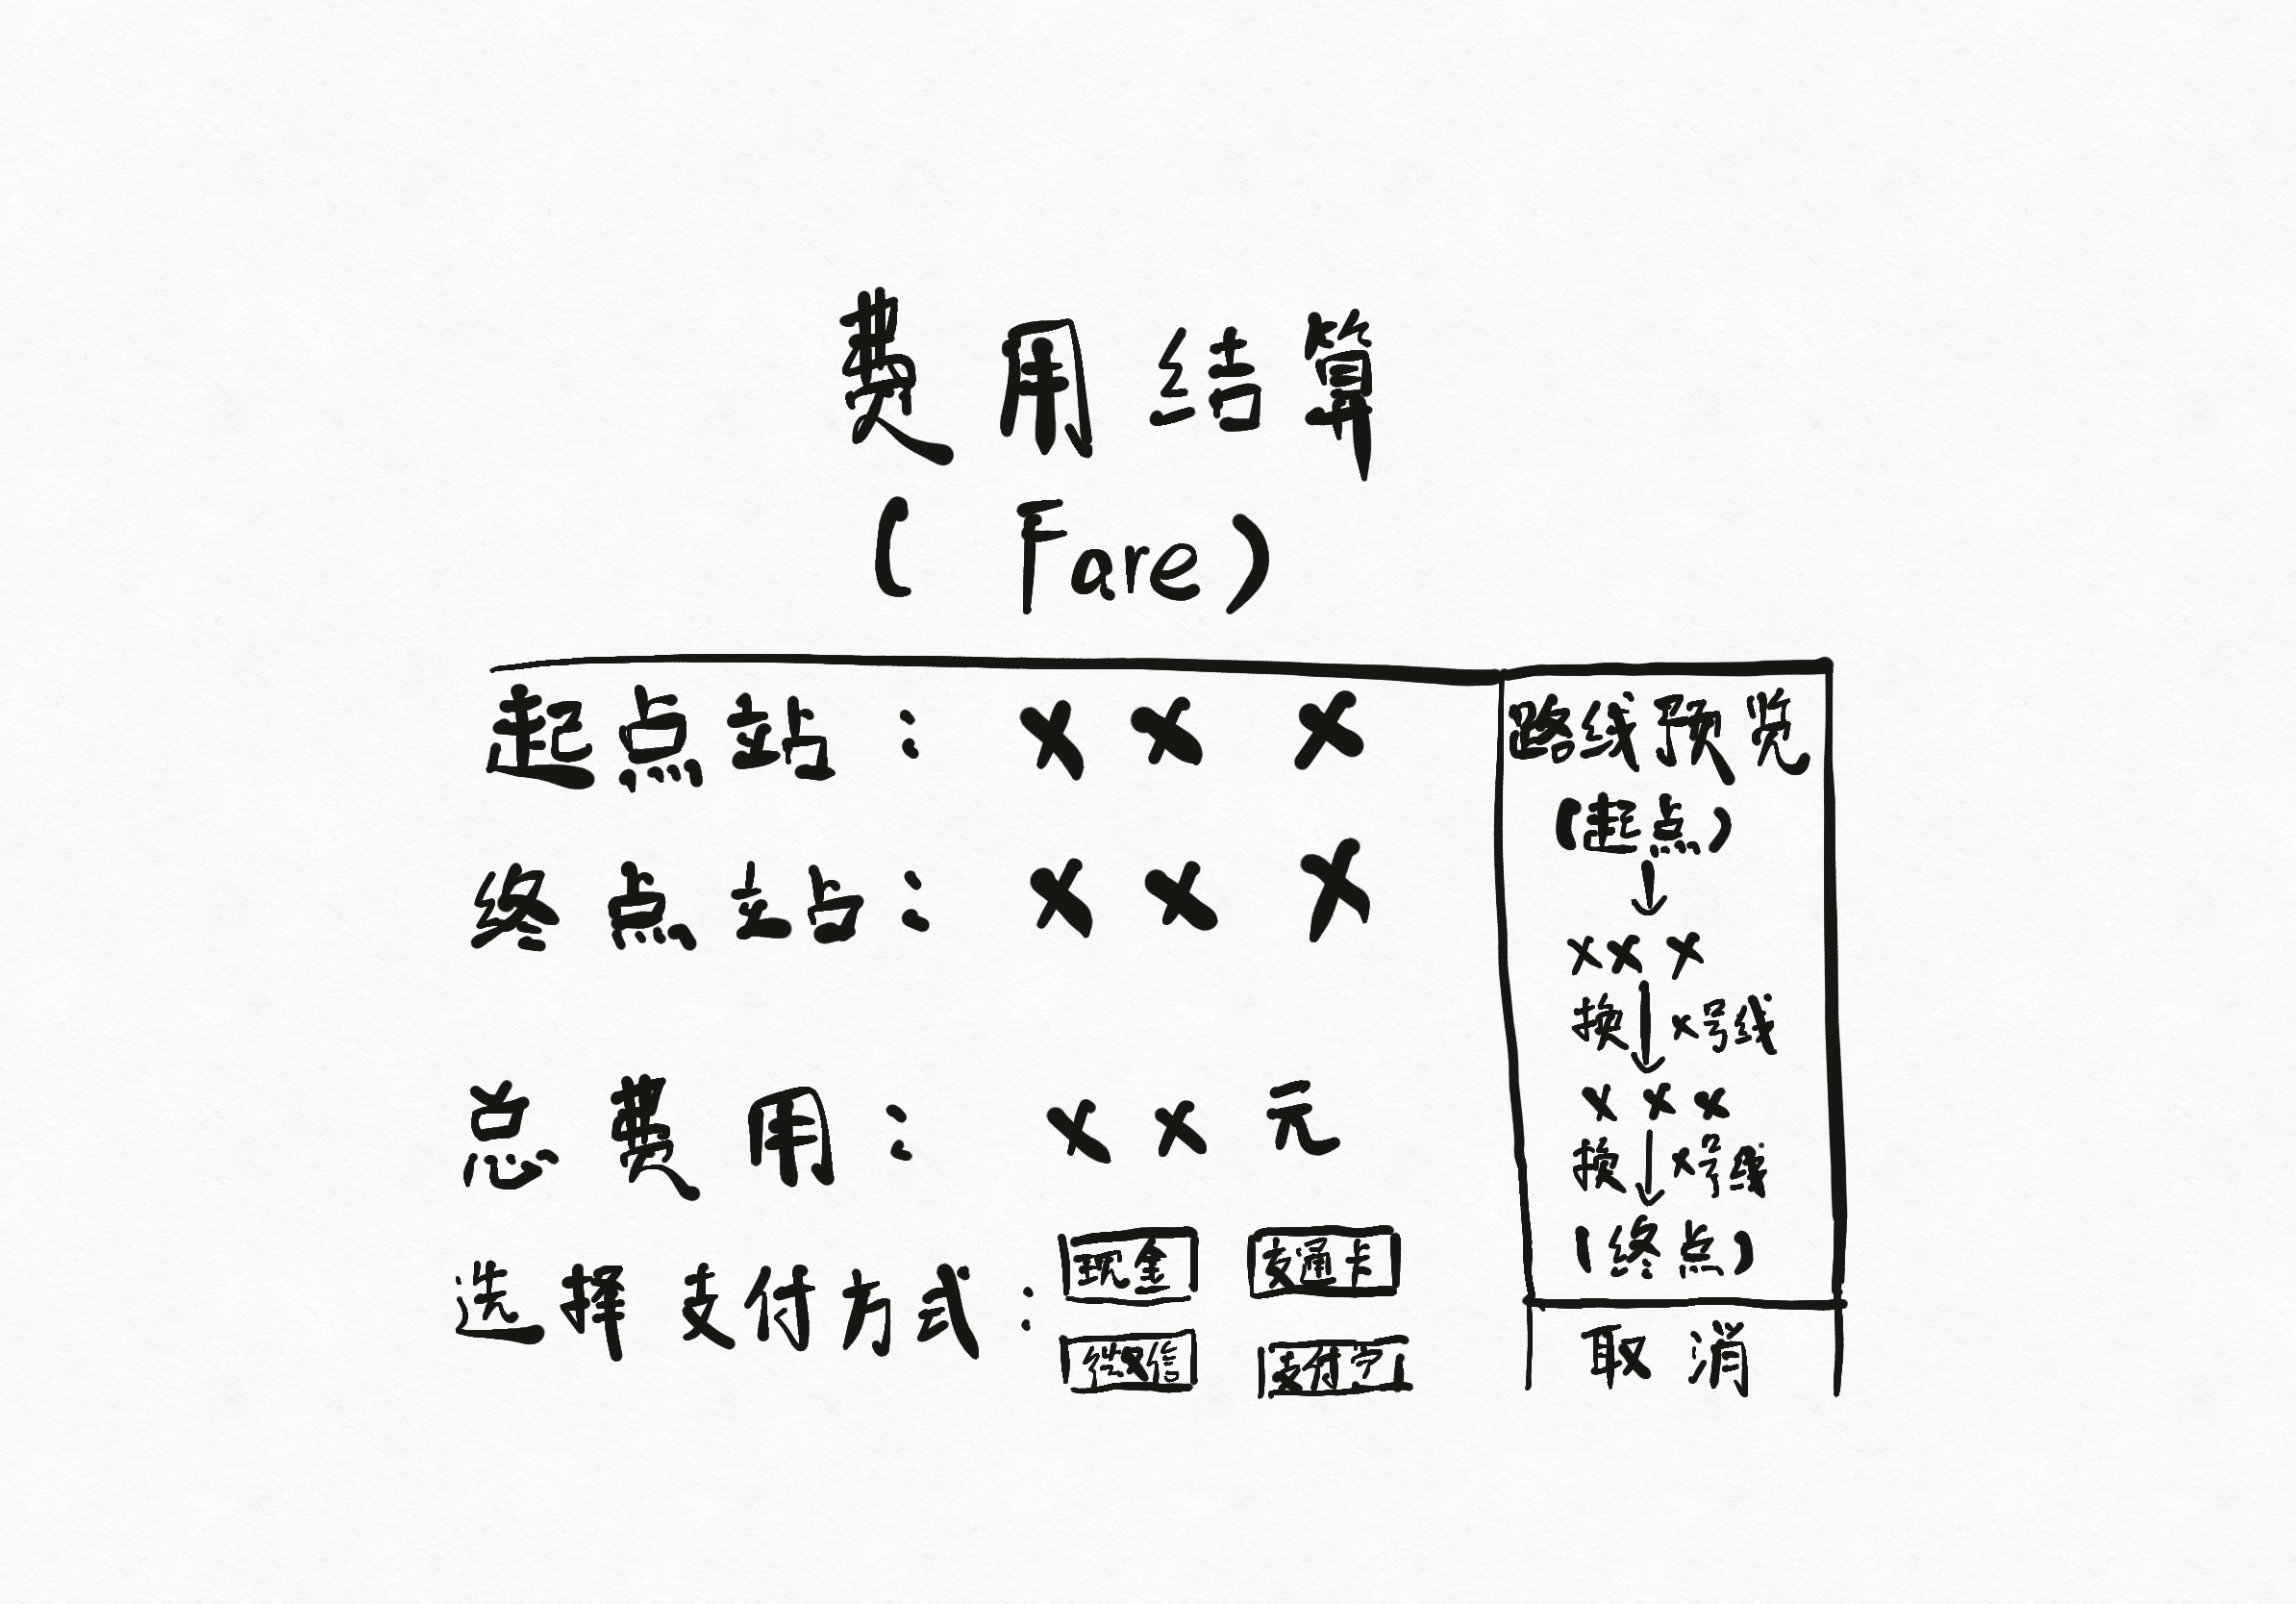 费用结算
(Fare)
起点站：×××
终点站：×××
总费用：××元
选择支付方式：
现金 交通卡
微信 支付宝
路线预览
(起点)
↓
×××
换↓×号线
×××
换↓×号线
(终点)
取消